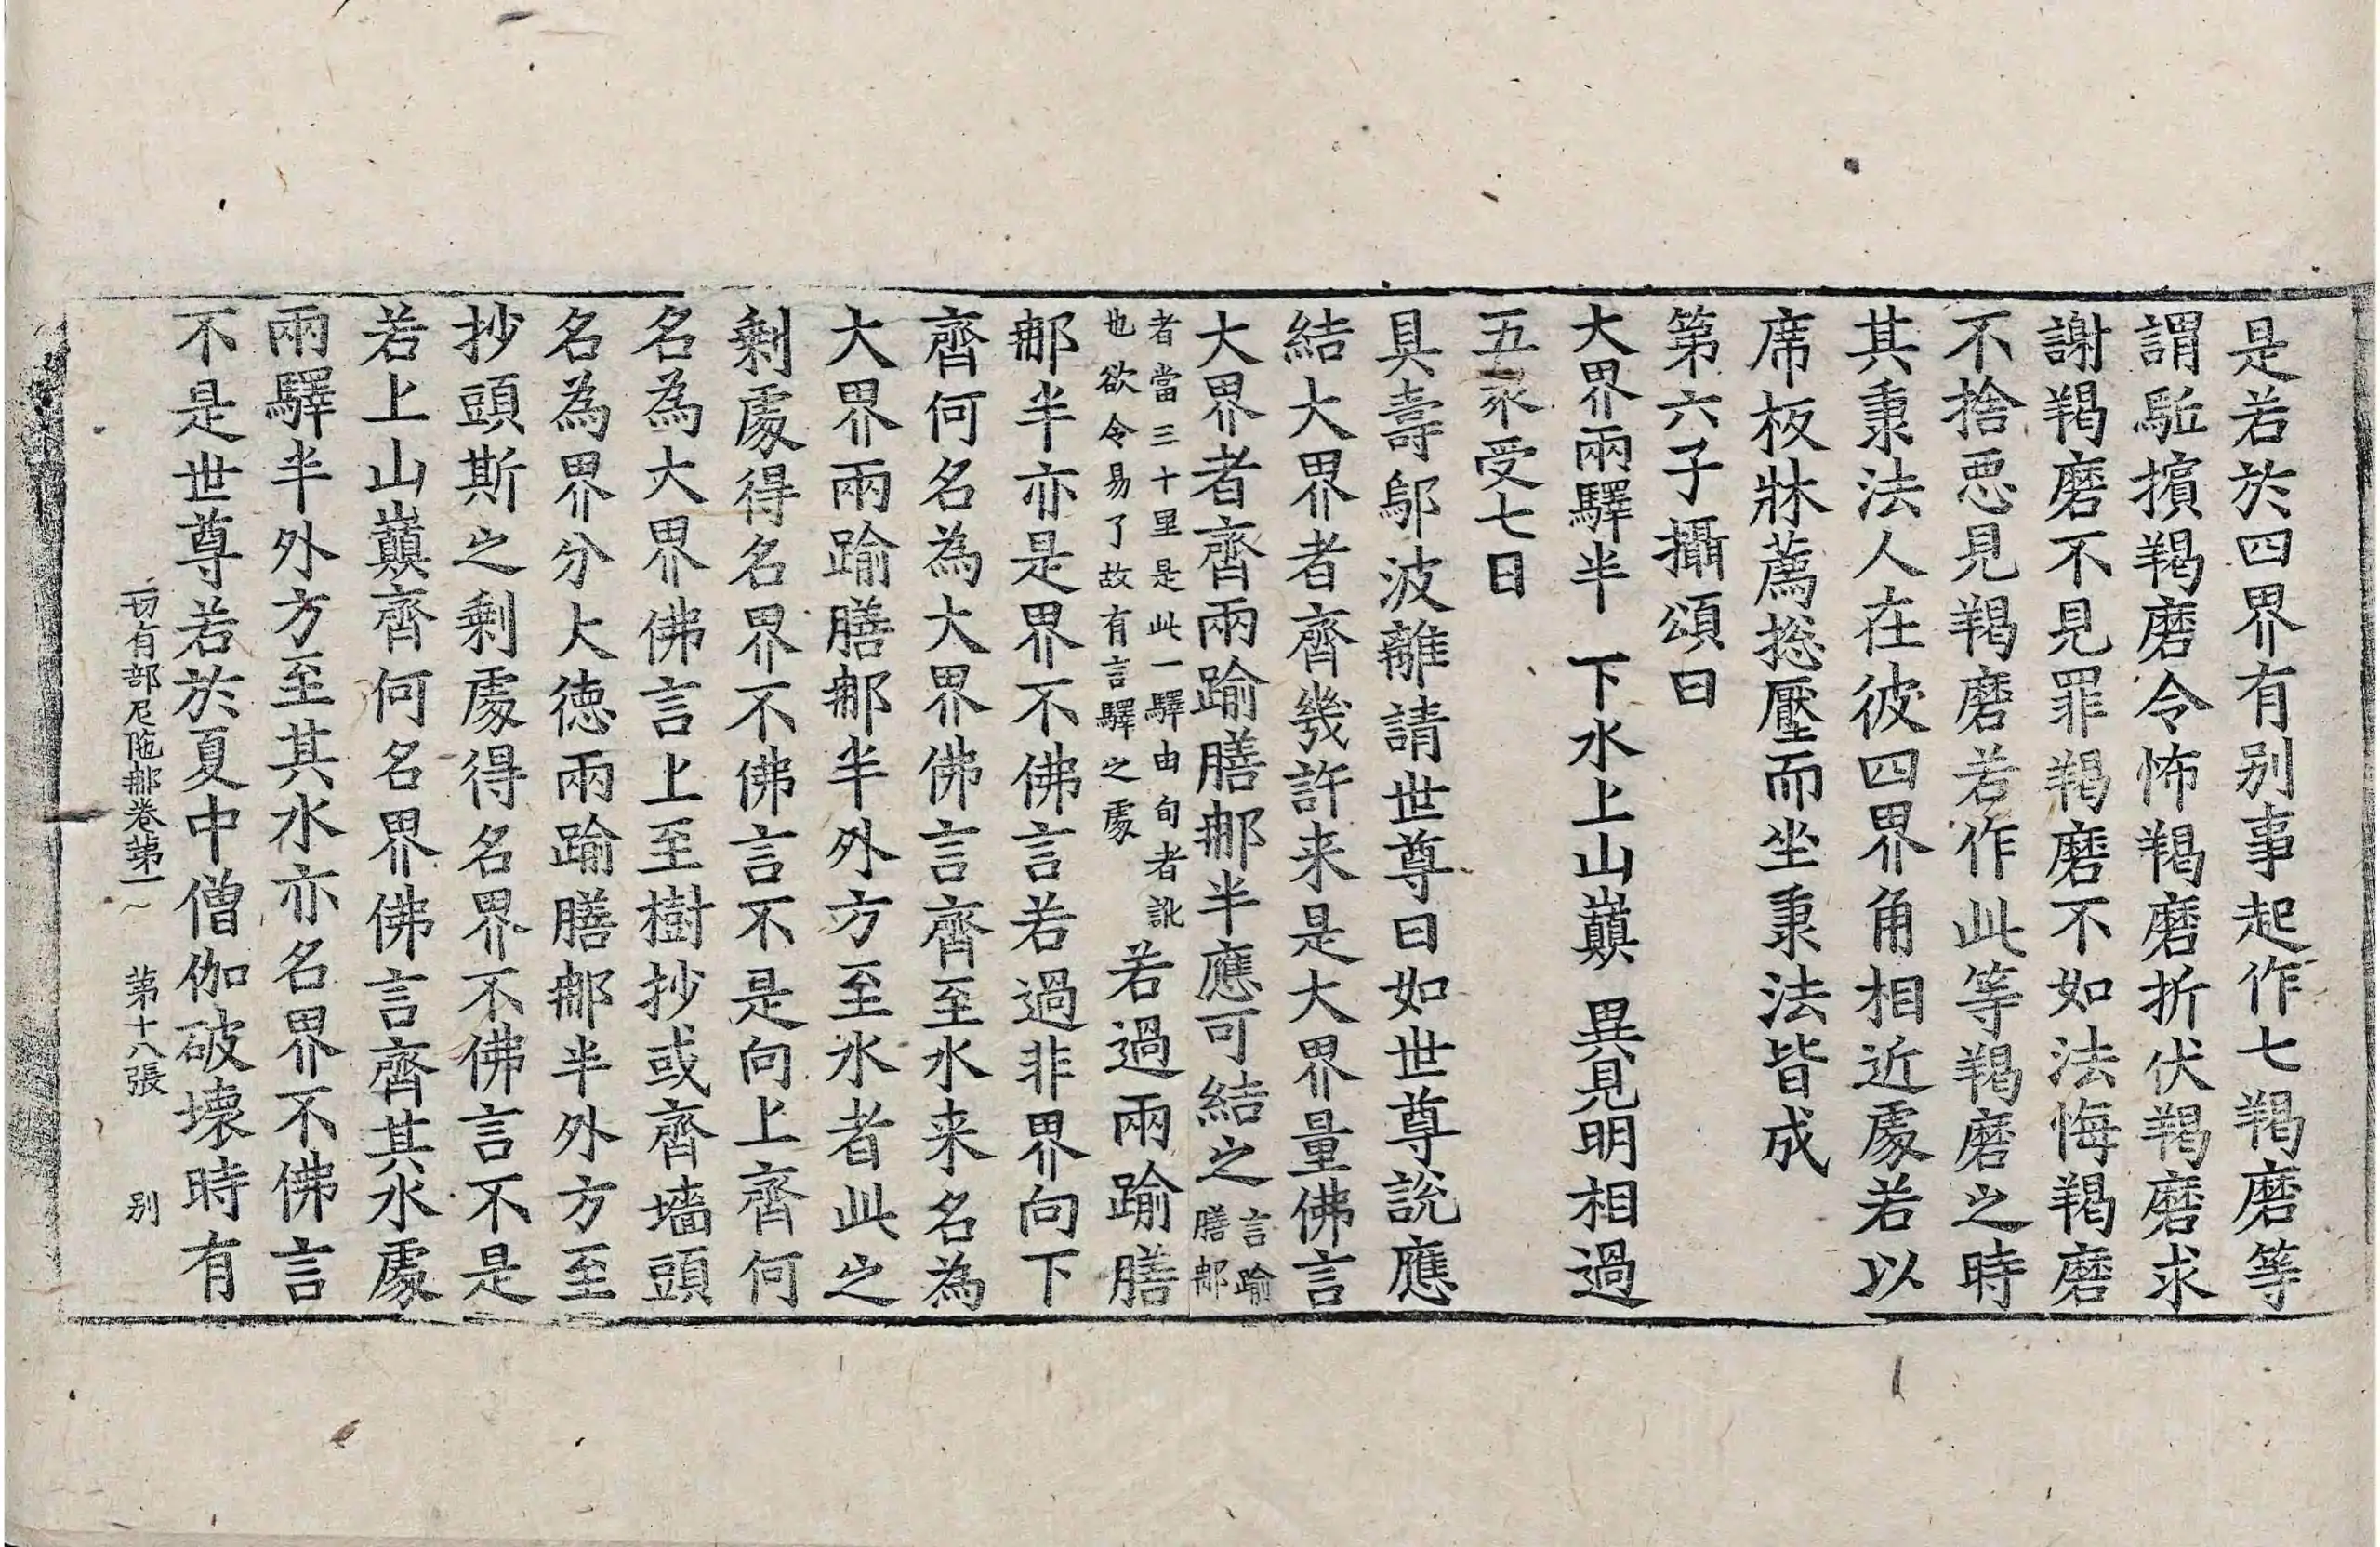 是若於四界有别事起作七羯磨等
謂駈擯羯磨令怖羯磨折伏羯磨求
謝羯磨不見罪羯磨不如法悔羯磨
不捨惡見羯磨若作此等羯磨之時
其秉法人在彼四界角相近處若以
席板牀薦揔壓而坐秉法皆成
第六子攝頌曰
大界兩驛半 下水上山巔 異見明相過
五衆受七日
具壽鄔波離請世尊曰如世尊說應
結大界者齊幾許来是大界量佛言
大界者齊兩踰膳那半應可結之言踰膳那
者當三十里是此一驛由旬者訛也欲令易了故有言驛之處若過兩踰膳
那半亦是界不佛言若過非界向下
齊何名為大界佛言齊至水来名為
大界兩踰膳那半外方至水者此之
剩處得名界不佛言不是向上齊何
名為大界佛言上至樹抄或齊墻頭
名為界分大德兩踰膳那半外方至
抄頭斯之剩處得名界不佛言不是
若上山巔齊何名界佛言齊其水處
兩驛半外方至其水亦名界不佛言
不是世尊若於夏中僧伽破壞時有
一切有部尼陁那卷第一 第十八張 别